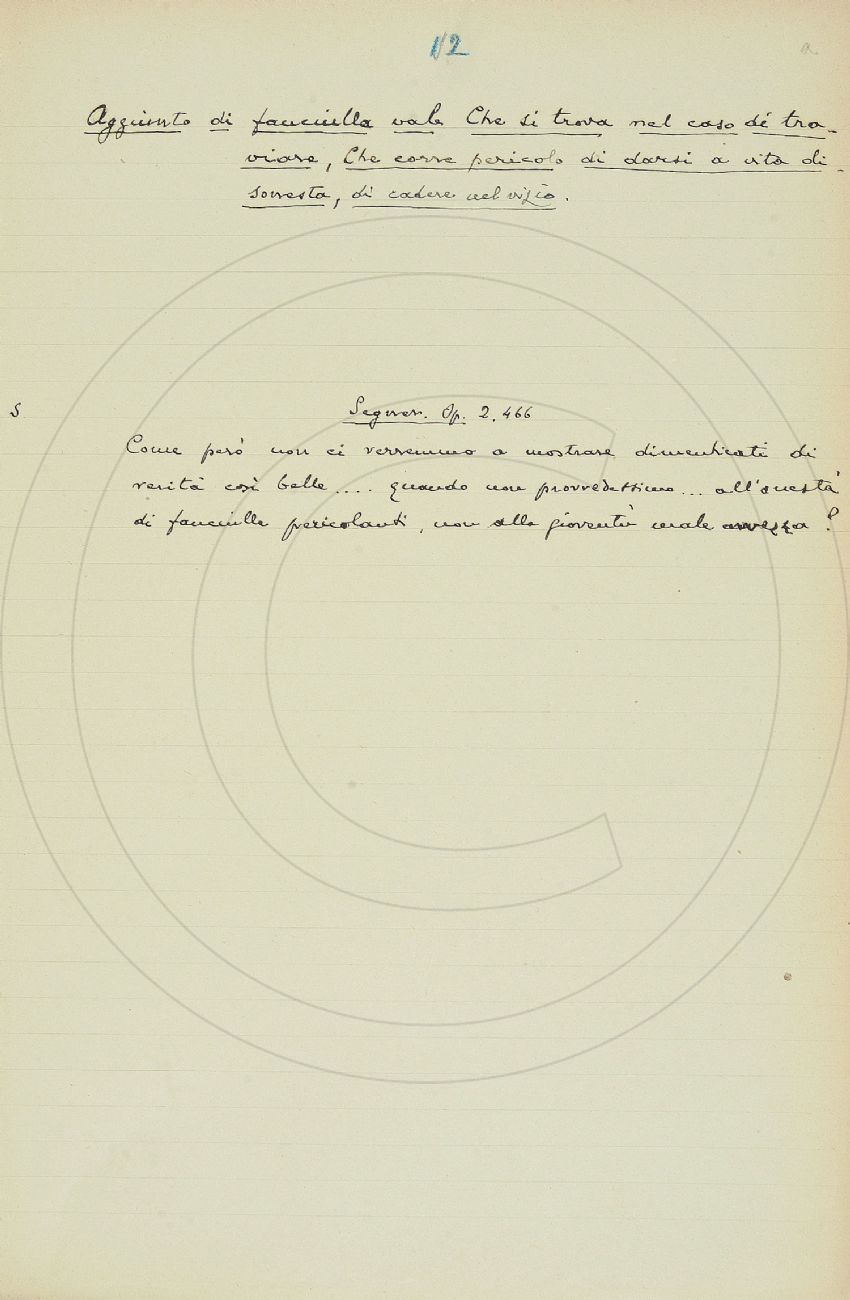 12
a
Aggiunto di fanciulla vale Che si trova nel caso di tra-
viare, Che corre pericolo di darsi a vita di-
sonesta, di cadere nel vizio.
S
Segner. Op. 2, 466
Come però non ci verremmo a mostrare dimenticati di
verità così belle .... quando non provvedessimo ... all'onestà
di fanciulle pericolanti, non alla gioventù male avvezza?